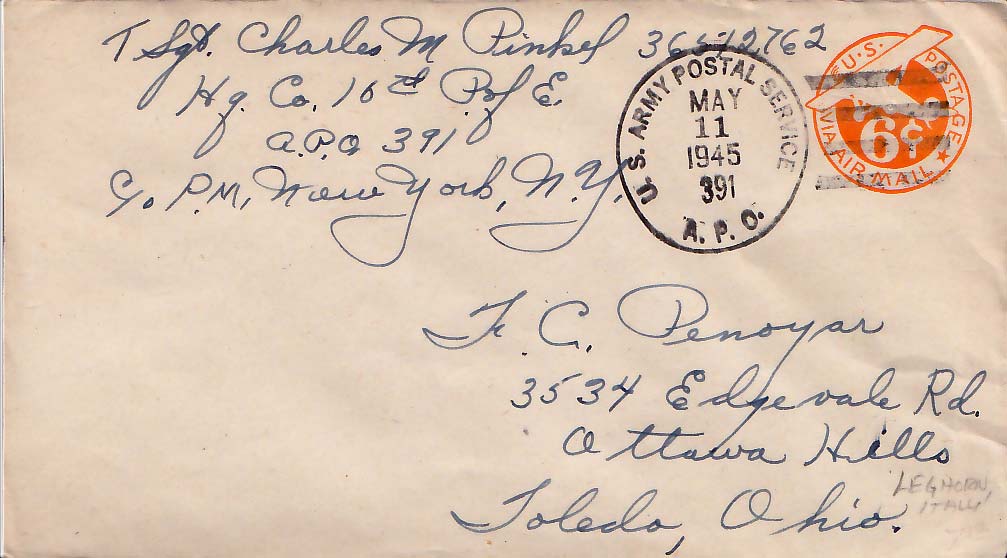 T Sgt. Charles M Pinkel 36412762
Hq. Co. 10th P.of E.
A.P.O 391
c/o P.M, New York, N.Y.
U.S. ARMY POSTAL SERVICE
MAY
11
1945
391
A.P.O.
U.S. POSTAGE
6¢
VIA AIR MAIL
F. C. Penoyar
3534 Edgevale Rd.
Ottawa Hills
Toledo, Ohio.
LEGHORN,
ITALY